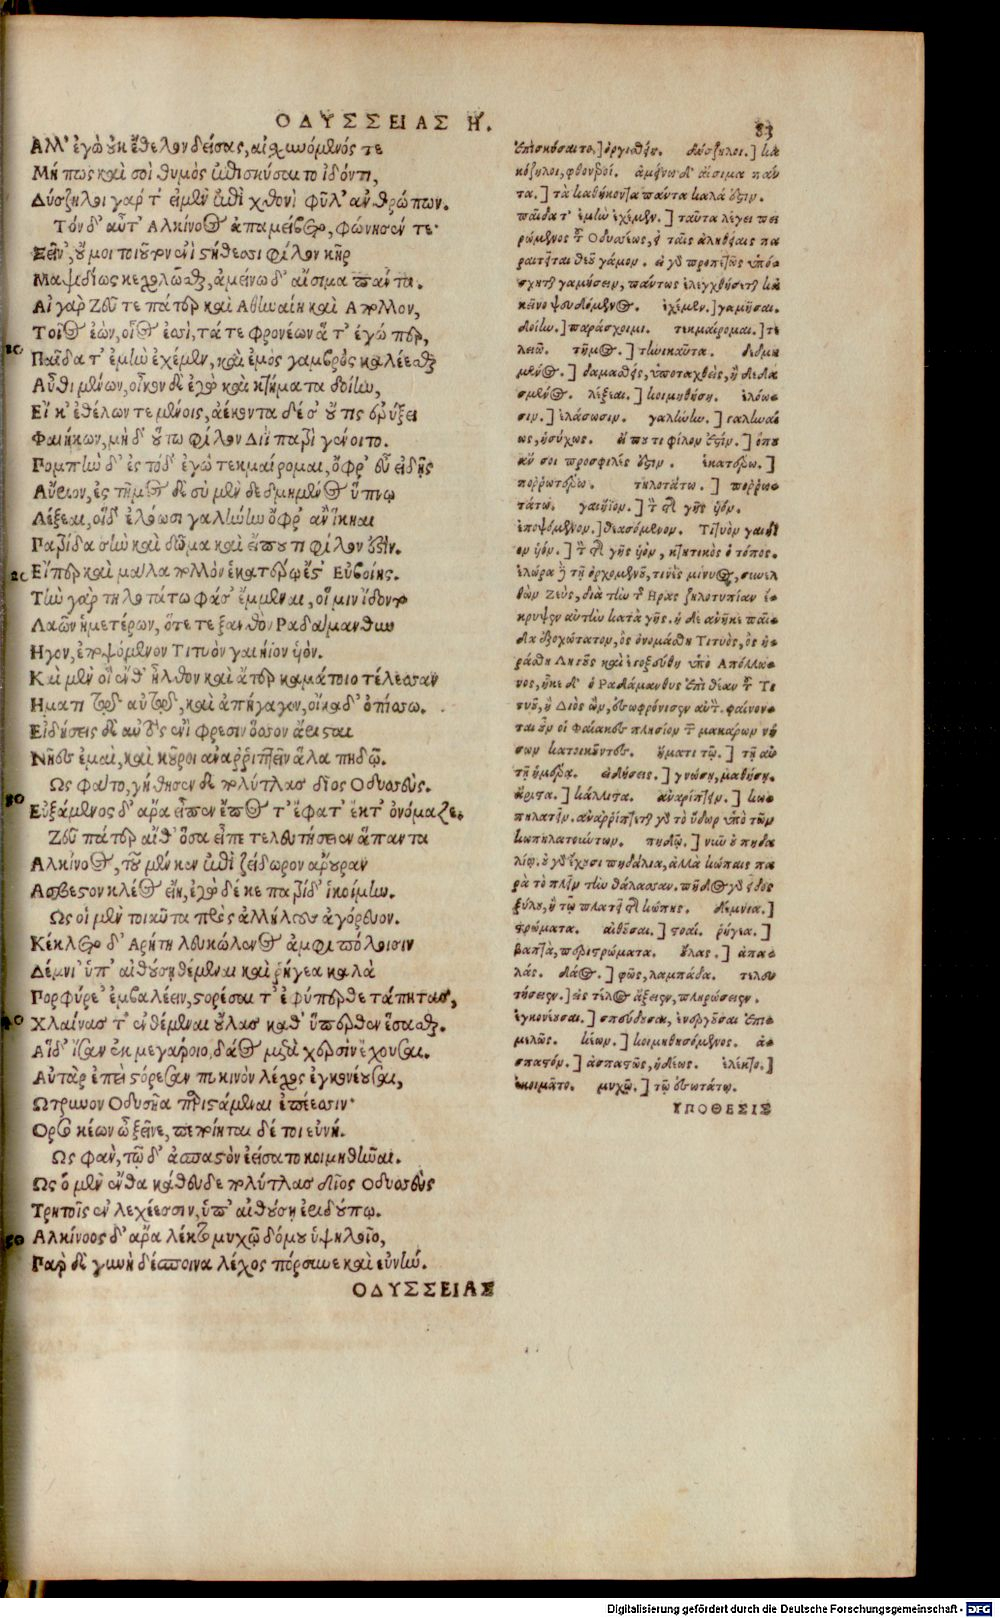 ΟΔΥΣΣΕΙΑΣ Η.
83
Αλλ' ἐγὼ οὐκ ἔθελον δείσας, αἰσχυνόμενός τε
Μή πως καὶ σοὶ θυμὸς ἐπισκύσαιτο ἰδόντι,
Δύσζηλοι γάρ τ' εἰμὲν ἐπὶ χθονὶ φῦλ' ἀνθρώπων.
Τὸν δ' αὖτ' Αλκίνοος ἀπαμείβετο, φώνησέν τε·
Ξεῖν', οὔ μοι τοιοῦτον ἐνὶ στήθεσσι φίλον κῆρ
Μαψιδίως κεχολῶσθαι, ἀμείνω δ' αἴσιμα πάντα.
Αἲ γὰρ Ζεῦ τε πάτερ καὶ Αθηναίη καὶ Απολλον,
Τοῖος ἐὼν, οἷός ἐσσι, τά τε φρονέων ἅ τ' ἐγώ περ,
Παῖδά τ' ἐμὴν ἐχέμεν, καὶ ἐμὸς γαμβρὸς καλέεσθαι
Αὖθι μένων, οἶκον δέ τ' ἐγὼ καὶ κτήματα δοίην,
Εἴ κ' ἐθέλων τε μένοις, ἀέκοντα δέ σ' οὔτις ἐρύξει
Φαιήκων, μὴ δ' οὕτω φίλον Διῒ πατρὶ γένοιτο.
Πομπὴν δ' ἐς τόδ' ἐγὼ τεκμαίρομαι, ὄφρ' εὖ εἰδῇς
Αὔριον, ἐς τῆμος δὲ σὺ μὲν δεδμημένος ὕπνῳ
Λέξεαι, οἵδ' ἐλόωσι γαλήνην ὄφρ' ἂν ἵκηαι
Πατρίδα σὴν καὶ δῶμα καὶ εἴπου τι φίλον ἐστίν.
Εἴπερ καὶ μάλα πολλὸν ἑκατέρω ἔστ' Εὐβοίης.
Τὴν γὰρ τηλοτάτω φάσ' ἔμμεναι, οἵ μιν ἴδοντο
Λαῶν ἡμετέρων, ὅτε τε ξανθὸν Ραδάμανθυν
Ηγον, ἐποψόμενον Τιτυὸν γαιήϊον υἱόν.
Καὶ μὲν οἱ ἔνθ' ἦλθον καὶ ἄτερ καμάτοιο τέλεσσαν
Ηματι τῷδ' αὐτῷδ', καὶ ἀπήγαγον, οἴκαδ' ὀπίσσω.
Εἰδήσεις δὲ καὶ αὐτὸς ἐνὶ φρεσὶν ὅσσον ἄρισται
Νῆες ἐμαὶ, καὶ κοῦροι ἀναρριπτεῖν ἅλα πηδῷ.
Ως φάτο, γήθησεν δὲ πολύτλας δῖος Οδυσσεὺς.
Εὐξάμενος δ' ἄρα εἶπεν ἔπος τ' ἔφατ' ἔκτ' ὀνόμαζε.
Ζεῦ πάτερ αἴθ' ὅσα εἶπε τελευτήσειεν ἅπαντα
Αλκίνοος, τοῦ μέν κεν ἐπὶ ζείδωρον ἄρουραν
Ασβεστον κλέος εἴη, ἐγὼ δέ κε πατρίδ' ἱκοίμην.
Ως οἱ μὲν τοιαῦτα πρὸς ἀλλήλους ἀγόρευον.
Κέκλετο δ' Αρήτη λευκώλενος ἀμφιπόλοισιν
Δέμνι' ὑπ' αἰθούσῃ θέμεναι καὶ ῥήγεα καλὰ
Πορφύρε' ἐμβαλέειν, στορέσαι τ' ἐφύπερθε τάπητας,
Χλαίνας τ' ἐνθέμεναι οὔλας καθ' ὕπερθεν ἕσασθαι.
Αἱ δ' ἴσαν ἐκ μεγάροιο, δάος μετὰ χερσὶν ἔχουσαι.
Αὐτὰρ ἐπεὶ στόρεσαν πυκινὸν λέχος ἐγκονέουσαι,
Ωτρυνον Οδυσῆα παριστάμεναι ἐπέεσσιν·
Ορσο κέων ὦ ξεῖνε, πεποίηται δέ τοι εὐνή.
Ως φὰν, τῷ δ' ἀσπαστὸν ἐείσατο κοιμηθῆναι.
Ως ὁ μὲν ἔνθα κάθευδε πολύτλας δῖος Οδυσσεὺς
Τρητοῖς ἐν λεχέεσσιν, ὑπ' αἰθούσῃ ἐριδούπῳ.
Αλκίνοος δ' ἄρα λέκτο μυχῷ δόμου ὑψηλοῖο,
Παρ δὲ γυνὴ δέσποινα λέχος πόρσυνε καὶ εὐνήν.
ΟΔΥΣΣΕΙΑΣ
Ἐπισκύσαιτο.] ὀργισθείη. δύσζηλοι.] κα
κόζηλοι, φθονεροί. ἀμείνω δ' αἴσιμα πάν
τα.] τὰ καθήκοντα πάντα καλά ἐστιν.
παῖδα τ' ἐμὴν ἐχέμεν.] ταῦτα λέγει πει
ρώμενος τοῦ Οδυσσέως, εἰ ταῖς ἀληθείαις πα
ραιτεῖται θεοῦ γάμον.
κεῖνο ψευδόμενος. ἐχέμεν.] γαμῆσαι.
δοίην.] παράσχοιμι. τεκμαίρομαι.] τε
λειῶ. τῆμος.] τηνικαῦτα. δεδμη
μένος.] δαμασθεὶς, ὑποταχθεὶς, ἢ δεδα
σμένος. λέξεαι.] κοιμηθήσῃ. ἐλόω
σιν.] ἐλάσωσιν. γαλήνην.] γαληναί
ως, ἡσύχως. εἴ που τι φίλον ἐστίν.] ὅπου
ἄν σοι προσφιλές ἐστιν. ἑκατέρω.]
πορρωτέρω. τηλοτάτω.] πορρω
τάτω. γαιήϊον.] τὸν τῆς γῆς υἱόν.
ἐποψόμενον.] θεασόμενον. Τιτυὸν γαιήϊ
ον υἱόν.] τὸν τῆς γῆς υἱὸν, κτητικὸς ὁ τόπος.
ἐλώρα
θὼν Ζεὺς, διὰ τὴν τῆς Ηρας ζηλοτυπίαν ἔ
κρυψεν αὐτὴν κατὰ γῆς. ἡ δὲ ἀνῆκε παῖ
δα
ράσθη Λητοῦς καὶ ἐτοξεύθη ὑπὸ Απόλλω
νος, ἧκε δ' ὁ Ραδάμανθυς ἐπὶ θέαν τοῦ Τι
τυοῦ, ἢ Διὸς ὢν, ἐσωφρόνισεν αὐτόν. φαίνον
ται οὖν οἱ Φαίακες πλησίον τῶν μακάρων νή
σων κατοικοῦντες. ἤματι τῷ.] τῇ αὐ
τῇ ἡμέρᾳ. εἰδήσεις.] γνώσῃ, μαθήσῃ.
ἄριστα.] κάλλιστα. ἀναρίπτειν.] κω
πηλατεῖν. ἀναρρίπτεται γὰρ τὸ ὕδωρ ὑπὸ τῶν
κωπηλατούντων. πηδῷ.] νῦν οὐ πηδα
λίῳ. οὐ γὰρ ἔχουσι πηδάλια, ἀλλὰ κώπαις πα
ρὰ τὸ πλεῖν τὴν θάλασσαν. πηδὸς γὰρ εἶδος
ξύλου, ἢ τῷ πλατεῖ τῆς κώπης. δέμνια.]
στρώματα. αἰθούσαι.] στοαί. ῥήγεα.]
βαπτὰ, περιστρώματα. οὔλας.] ἁπα
λάς. δάος.] φῶς, λαμπάδα. τελευ
τήσειεν.] εἰς τέλος ἄξειεν, πληρώσειεν.
ἐγκονέουσαι.] σπεύδουσαι, ἐνεργοῦσαι ἐπι
μελῶς. κέων.] κοιμηθησόμενος. ἀ
σπαστόν.] ἀσπαστῶς, ἡδέως. ἐλέκτο.]
ἐκοιμᾶτο. μυχῷ.] τῷ ἐσωτάτῳ.
ΥΠΟΘΕΣΙΣ
Digitalisierung gefördert durch die Deutsche Forschungsgemeinschaft - DFG